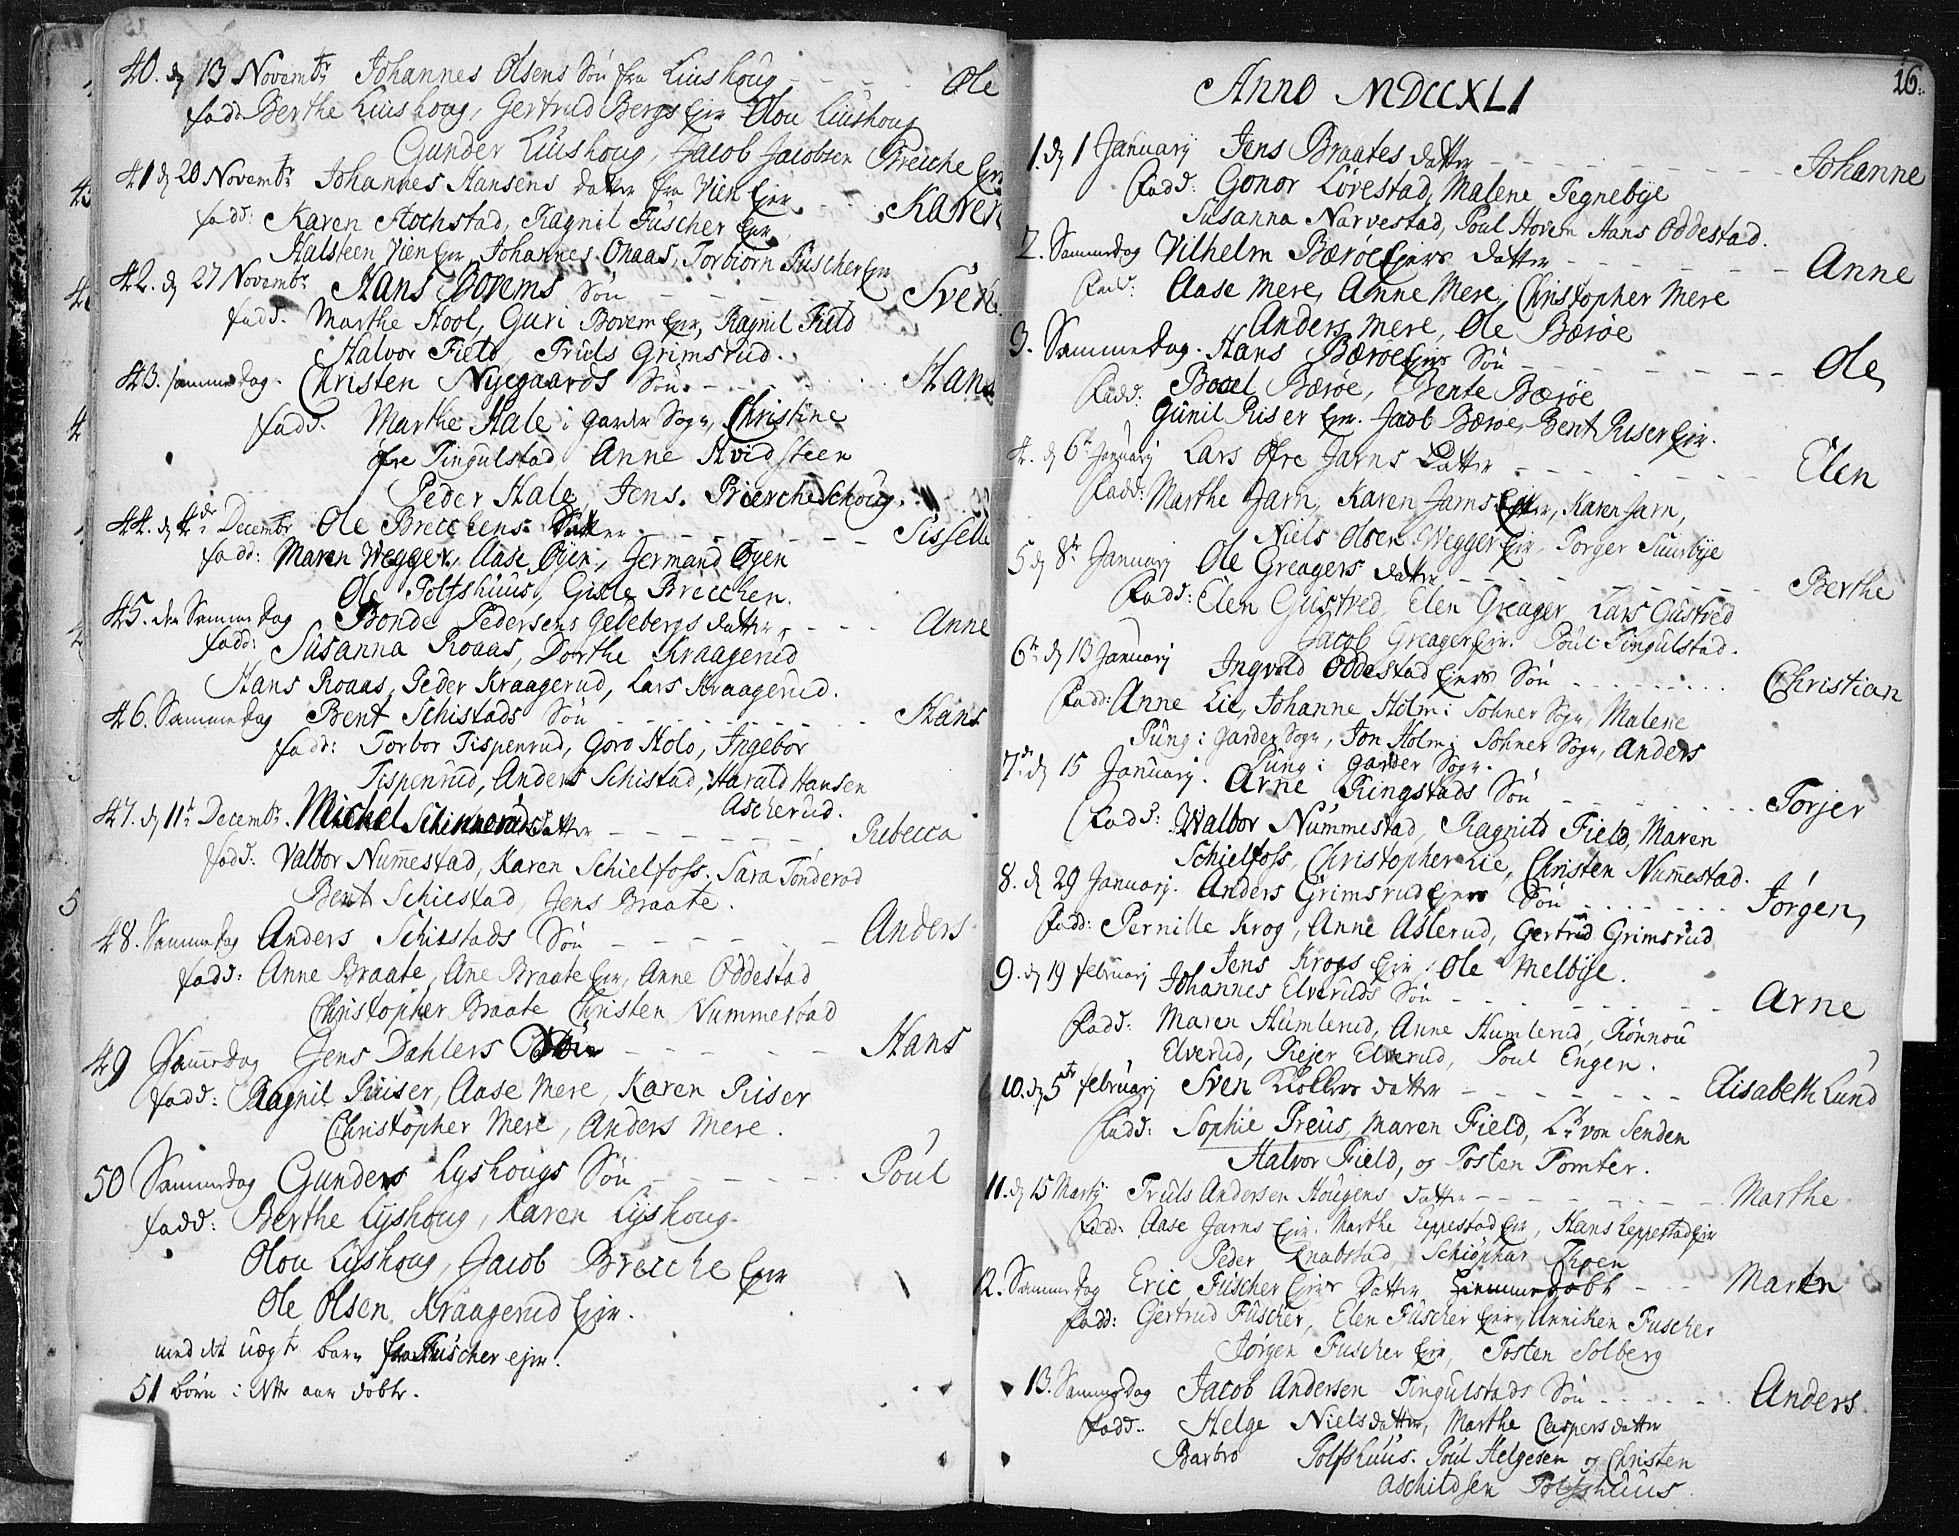 40. d 13 Novembr Johannes Olsens Sön fra Liushoug - - - Ole
fadd Berthe Liushoug, Gertrud Bergs Eje Olou Liushoug
Gunder Liushoug, Jacob Jacobsen Breiche Eje
41 d 20 Novembr Johannes Hansens datter fra Vien Eje - - - Karen
fadd: Karen Stochstad, Ragnil Fuscher Eje
Halsteen Vien Eje, Johannes Onaas, Torbiørn Fuscher Eje
42. d 27 Novembr Hans Bovems Sön - - - - Sven
fadd. Marthe Hool, Guri Bovem Eje, Ragnil Field
Halvor Field, Truls Grimsrud.
43. samme dag. Christen Nygaards Sön - - - Hans
fadd. Marthe Hale i Garder Sogn, Christine
øfre Tingulstad Anne Hvidsteen
Peder Hale, Jens. Brierche Schoug.
44. d 4de Decembr Ole Breichens Datter - - - - - Sisselle
fadd: Maren Wegger, Aase Øyen, Germand Øyen
Ole Tolfshuus, Gisle Breichen.
45. den Samme dag Bonde Pedersens Geleberg datter, - - - Anne
fadd: Susanna Roaas, Dorthe Kraagerud
Hans Roaas, Peder Kraagerud, Lars Kraagerud.
46. Samme dag Bent Schistads Sön - - - - - Hans
fadd: Torbor Tispenrud, Goro Holo, Ingebor
Tispenrud, Anders Schistad, Harald Hansen
Ascherud.
47. d 11te Decembr. Michel Schinneruds datter - - - - Rebecca
fadd: Valbor Nummestad, Karen Schielfoss. Sara Tonderod
Bent Schiestad, Jens Braate.
48. Samme dag Anders Schistads Sön - - - - - Anders
fadd: Anne Braate, Ane Braate Eje, Anne Oddestad
Christopher Braate Christen Nummestad
49 Samme dag Jens Dahlers Sön - - - - - Hans
fadd: Ragnil Riiser, Aase Mere, Karen Riser
Christopher Mere, Anders Mere.
50 Samme dag Gunders Lyshougs Sön - - - - - Poul
fadd: Berthe Lyshoug, Karen Lyshoug
Olou Lyshoug, Jacob Breiche Eje
Ole Olsen Kraagerud Eje.
med det uægte barn fra Fuscher eje.
51 børn i dette aar døbte.
16.
Anno MDCCXLI
1. d 1 January Jens Braates datter - - - - - - Johanne
Fadd: Gonor Løvestad, Malene Tegnebye
Susanna Narvestad, Poul Hovem Hans Oddestad.
2. Samme dag Vilhelm Bærøe Ejers datter - - - - - - Anne
Fadd: Aase Mere, Anne Mere, Christopher Mere
Anders Mere, Ole Bærøe
3. Samme dag. Hans Bærøe Ejers Sön - - - - - - Ole
Fadd: Bodel Bærøe, Bente Bærøe
Gunil Riser Eje. Jacob Bærøe, Bent Riser Eje.
4. d 6te January Lars Øfre Jarns Datter - - - - - - Elen
Fadd: Marthe Jarn, Karen Jarns Eje, Karen Jarn,
Niels Olsen Wegger Eje Torger Suurbye
5 d 8te January Ole Greagers datter - - - - - - Berthe
Fadd: Elen Gustved, Elen Greager, Lars Gusted
Jacob Greager Eje. Poul Tingulstad.
6te d 13 January Ingvold Oddestad Ejers Sön - - - - - Christian
Fadd: Anne Lie, Johanne Holm i Sohner Sogn, Malene
Pung i Garder Sogn, Jon Holm i Sohner Sogn, Anders
Pung i Garder Sogn.
7de d 15 January. Arne Ringstads Sön - - - - - Torjer
Fadd: Walbor Nummestad, Ragnild Field, Maren
Schielfoss, Christopher Lie, Christen Nummestad.
8. d 29 January. Anders Grimsrud Ejers Sön - - - - - Jørgen
Fadd: Pernille Krog, Anne Aslerud, Gertrud Grimsrud
Jens Krogs Eje, Ole Melbye.
9. d 19 februarj Johannes Elveruds Sön - - - - - Arne
Fadd: Maren Humlerud, Anne Humlerud, Rønnou
Elverud, Rejer Elverud, Poul Engen.
10. d 5te februarj Sven Kiollers datter - - - - - - Elisabeth Lund
Fadd: Sophie Preus, Maren Field, Lt von Senden
Halvor Field, og Tosten Tomter.
11. d 15 Martij Truls Andersen Hougens datter - - - - - - Marthe
Fadd: Aase Jarns Eje. Marthe Leppestad Eje, Hans Leppestad Eje
Peder Knabstad, Schiøphar Thoen
12. Samme dag Eric Fuscher Ejers Datter hiemmedøbt - - Maren
fadd: Gertrud Fuscher, Elen Fuscher Eje, Anniken Fuscher
Jørgen Fuscher Eje, Tosten Solberg
13. Samme dag Jacob Andersen Tingulstads Sön - - - - - Anders
fadd. Helge Nielsdatter, Marthe Caspersdatter
Barbro Tolfshuus. Poul Helgesen og Christen
Aschildsen Tolfshuus.